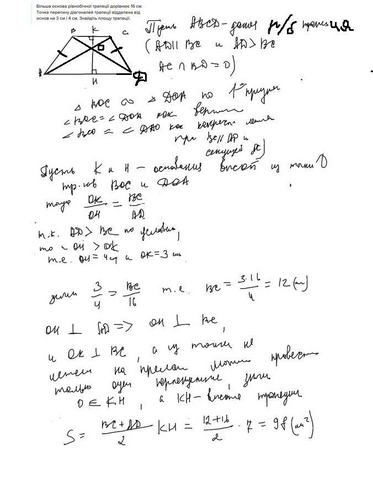 Більша основа рівнобічної трапеції дорівнює 16 см.
Точка перетину діагоналей трапеції віддалена від
основ на 3 см і 4 см. Знайдіть площу трапеції.
B K C
O
A H D
Пусть ABCD - данная р/б трапеция
(AD || BC и AD > BC
AC ∩ BD = O)
△ BOC ∞ △ DOA по 1 признаку
∠BOC = ∠DOA как вертик
∠BCO = ∠DAO как накрест леж
при BC || AD и
секущей AC)
Пусть K и H - основания высот из точки O
тр-ков BOC и DOA
тогда OK/OH = BC/AD
т.к. AD > BC по условию,
то и OH > OK
т.е. OH = 4 см и OK = 3 см.
3/4 = BC/16 т.е. BC = 3·16/4 = 12 (см)
OH ⊥ AD => OH ⊥ BC,
и OK ⊥ BC, а из точки не
на прямой можно провести
только один перпендикуляр,
O ∈ KH, а KH - высота трапеции
S = BC + AD/2 KH = 12+16/2 · 7 = 98 (см²)